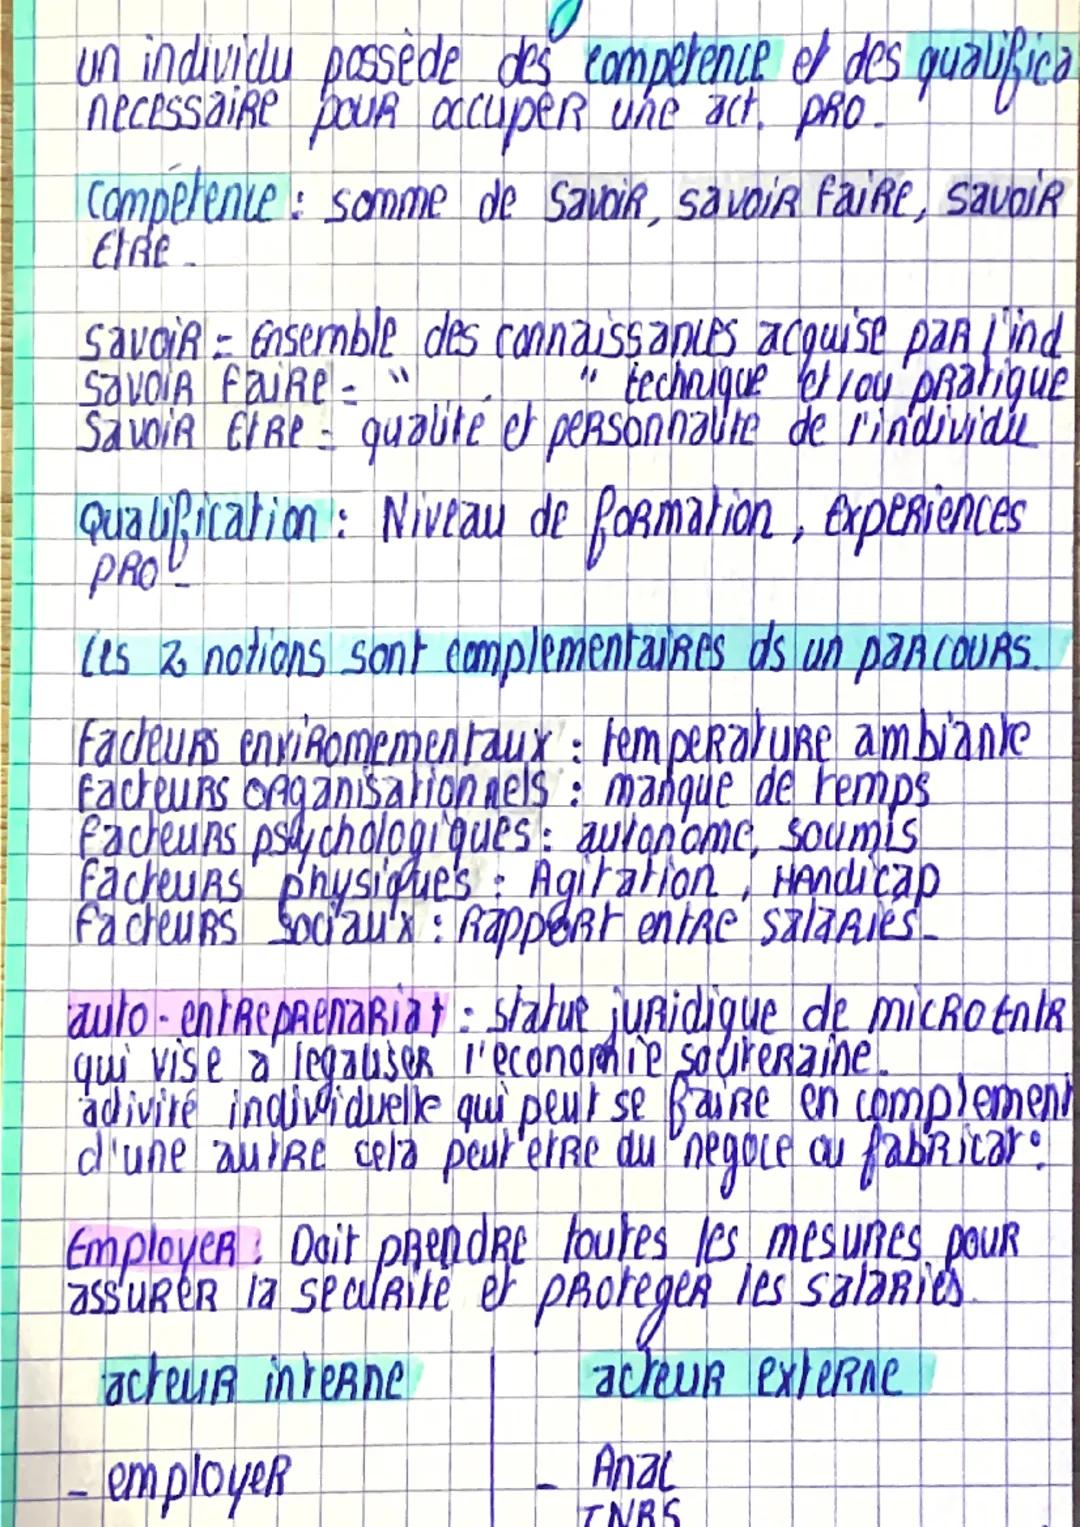 un individu possède des competence et des qualifica
necessaire pour occuper une act. pro.
Compétence : somme de savoir, savoir faire, savoir
Etre.
Savoir = Ensemble des connaissances acquise par l'ind
Savoir faire = " " technique et/ou pratique
Savoir Etre = qualite et personnalite de l'individu
Qualification : Niveau de formation, Experiences
pro -
Les 2 notions sont complementaires ds un parcours.
Facteurs enviromementaux : temperature ambiante
Facteurs organisationnels : manque de temps
Facteurs psychologiques : autonome, soumis
Facteurs physiques : Agitation, Handicap
Facteurs sociaux : Rapport entre salariés -
auto-entreprenariat : statue juridique de microentr
qui vise a legaliser l'economie souteraine.
activité individuelle qui peut se faire en complement
d'une autre cela peut etre du negoce ou fabricat°
Employer : Doit prendre toutes les mesures pour
assurer la securite et proteger les salariés.
acteur interne acteur externe
- employer - Anac
INRS